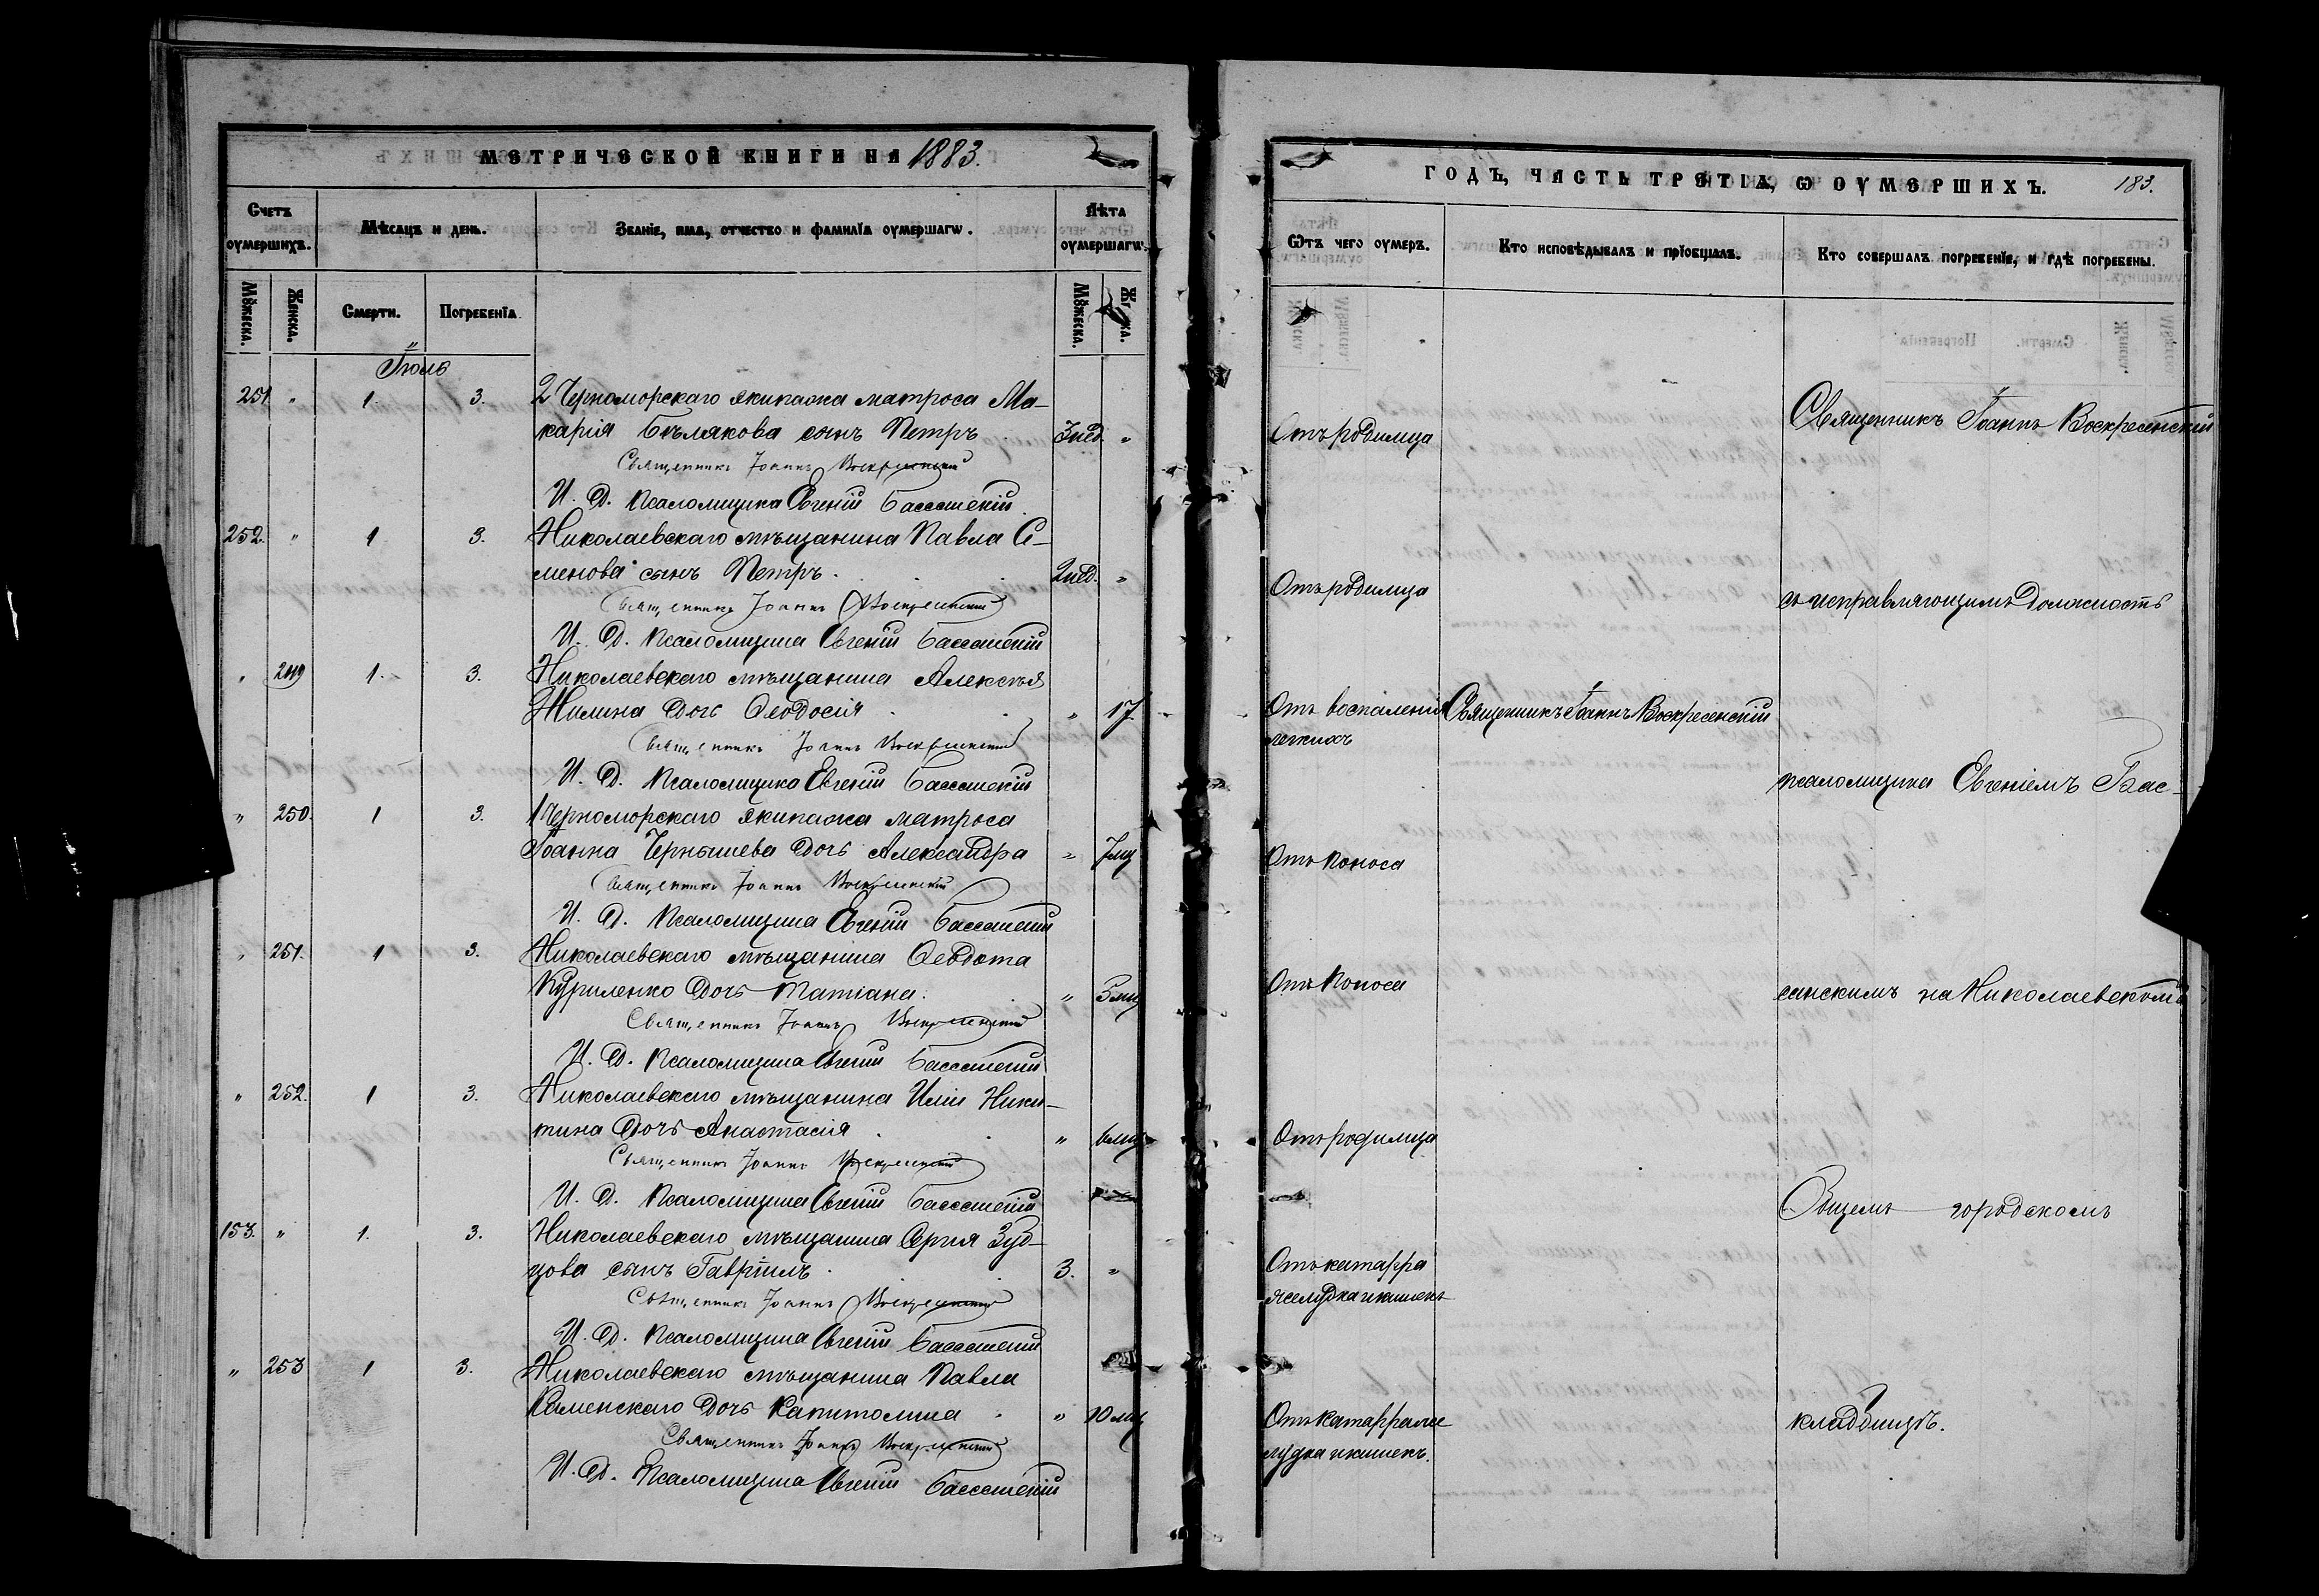 МЕТРИЧЕСКОЙ КНИГИ НА 1883.
Счетъ оумершихъ.
Мѣсяцъ и день.
Званіе, имя, отчество и фамилія оумершагѡ.
Лѣта оумершагѡ.
Мѹжеска.
Женска.
Смерти.
Погребенїя.
Мѹжеска.
Іюль
251. " 1. 3. 2 Черноморскаго экипажа матроса Ма-
карія Бѣлякова сынъ Петръ 3 нед. "
Священникъ Іоаннъ Воскресенскій
И. Д. Псаломщика Евгеній Бассанскій.
252. " 1 3. Николаевскаго мѣщанина Павла Се-
менова сынъ Петръ. 2 нед. "
Священникъ Іоаннъ Воскресенскій
И. Д. Псаломщика Евгеній Бассанскій
" 249 1. 3. Николаевскаго мѣщанина Алексѣя
Жилина дочь Ѳеодосія " 17.
Священникъ Іоаннъ Воскресенскій
И. Д. Псаломщика Евгеній Бассанскій
" 250. 1 3. 1 Черноморскаго экипажа матроса
Іоанна Чернышева дочь Александра " 7 мц
Священникъ Іоаннъ Воскресенскій
И. Д. Псаломщика Евгеній Бассанскій
" 251. 1 3. Николаевскаго мѣщанина Ѳеодота
Куриленко дочь Татіана. " 5 мц
Священникъ Іоаннъ Воскресенскій
И. Д. Псаломщика Евгеній Бассанскій
" 252. 1 3. Николаевскаго мѣщанина Иліи Ники-
тина дочь Анастасія " 6 мц
Священникъ Іоаннъ Воскресенскій
И. Д. Псаломщика Евгеній Бассанскій
153. " 1. 3. Николаевскаго мѣщанина Сергія Зуб-
цова сынъ Гавріилъ 3. "
Священникъ Іоаннъ Воскресенскій
И. Д. Псаломщика Евгеній Бассанскій
" 253 1 3. Николаевскаго мѣщанина Павла
Каменскаго дочь Капитолина " 10 мц
Священникъ Іоаннъ Воскресенскій
И. Д. Псаломщика Евгеній Бассанскій
ГОДЪ, ЧАСТЬ ТРЕТІЯ, Ѡ ОУМЕРШИХЪ. 183.
Ѿтъ чего оумеръ.
Кто исповѣдывалъ и прїобщалъ.
Кто совершалъ погребенїе, и гдѣ погребены.
Священникъ Іоаннъ Воскресенскій
Отъ родимца
Отъ родимца
съ исправляющимъ должность
Отъ воспаленія Священникъ Іоаннъ Воскресенскій
легкихъ
псаломщика Евгеніемъ Бас-
Отъ поноса
Отъ поноса
санскимъ на Николаевскомъ
Отъ родимца
Общемъ городскомъ
Отъ катарра
желудка и кишекъ
Отъ катарра же
лудка и кишекъ.
кладбищѣ.